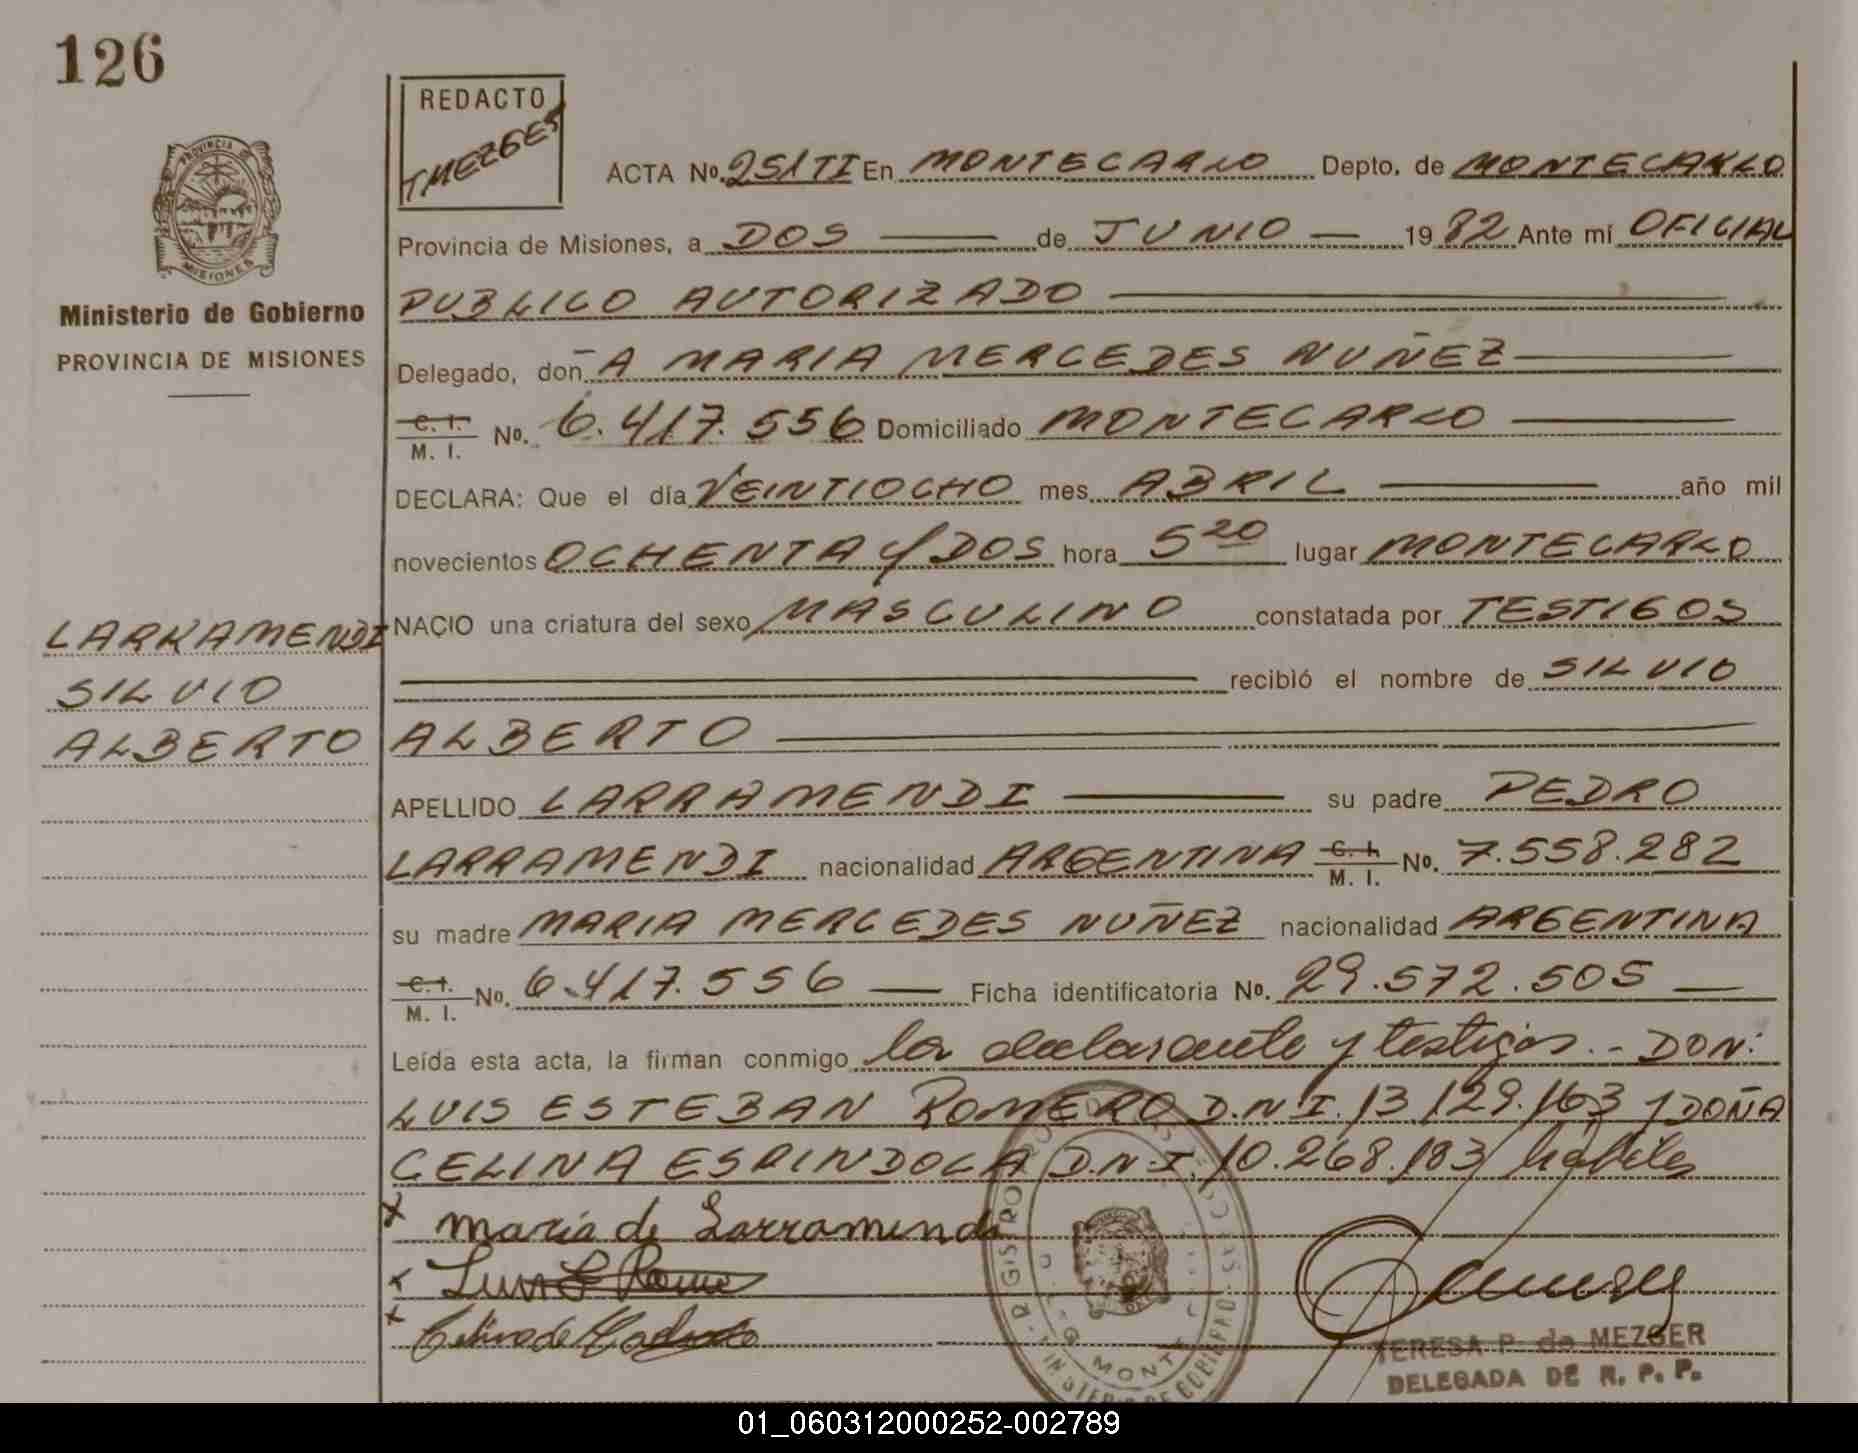 126
REDACTO
TMEZGER
PROVINCIA DE
MISIONES
Ministerio de Gobierno
PROVINCIA DE MISIONES
ACTA No. 251TI En MONTECARLO Depto. de MONTECARLO
Provincia de Misiones, a DOS de JUNIO 1982 Ante mí OFICIAL
PUBLICO AUTORIZADO
Delegado, doñA MARIA MERCEDES NUÑEZ
C. I.
M. I. No. 6.417.556 Domiciliado MONTECARLO
DECLARA: Que el día VEINTIOCHO mes ABRIL año mil
novecientos OCHENTA y DOS hora 5 20 lugar MONTECARLO
LARRAMENDI
SILVIO
ALBERTO
NACIO una criatura del sexo MASCULINO constatada por TESTIGOS
recibió el nombre de SILVIO
ALBERTO
APELLIDO LARRAMENDI su padre PEDRO
LARRAMENDI nacionalidad ARGENTINA C. I. M. I. No. 7.558.282
su madre MARIA MERCEDES NUÑEZ nacionalidad ARGENTINA
C. I.
M. I. No. 6.417.556 Ficha identificatoria No. 29.572.505
Leída esta acta, la firman conmigo la declarante y testigos.- DON:
LUIS ESTEBAN ROMERO D.N.I. 13.129.163 y DOÑA
CELINA ESPINDOLA D.N.I. 10.268.183 hábiles
x maria de Larramendi
x Luis E Rome
x Celina de
TERESA P. de MEZGER
DELEGADA DE R. P. P.
01_060312000252-002789